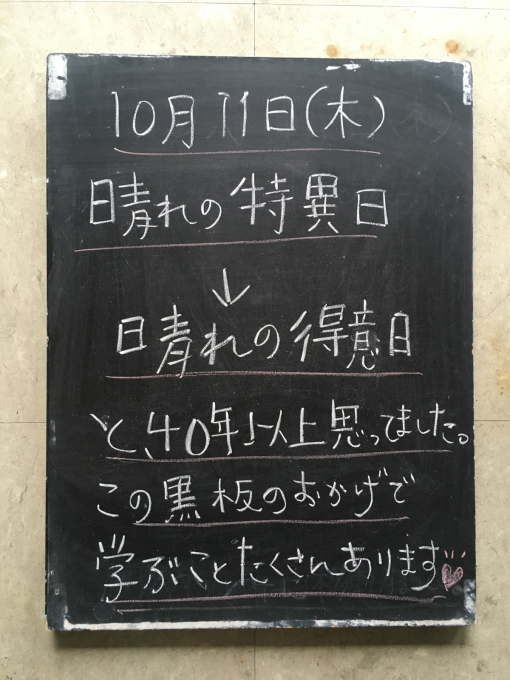 10月11日(木)
晴れの特異日
↓
晴れの得意日
と、40年以上思ってました。
この黒板のおかげで
学ぶことたくさんあります